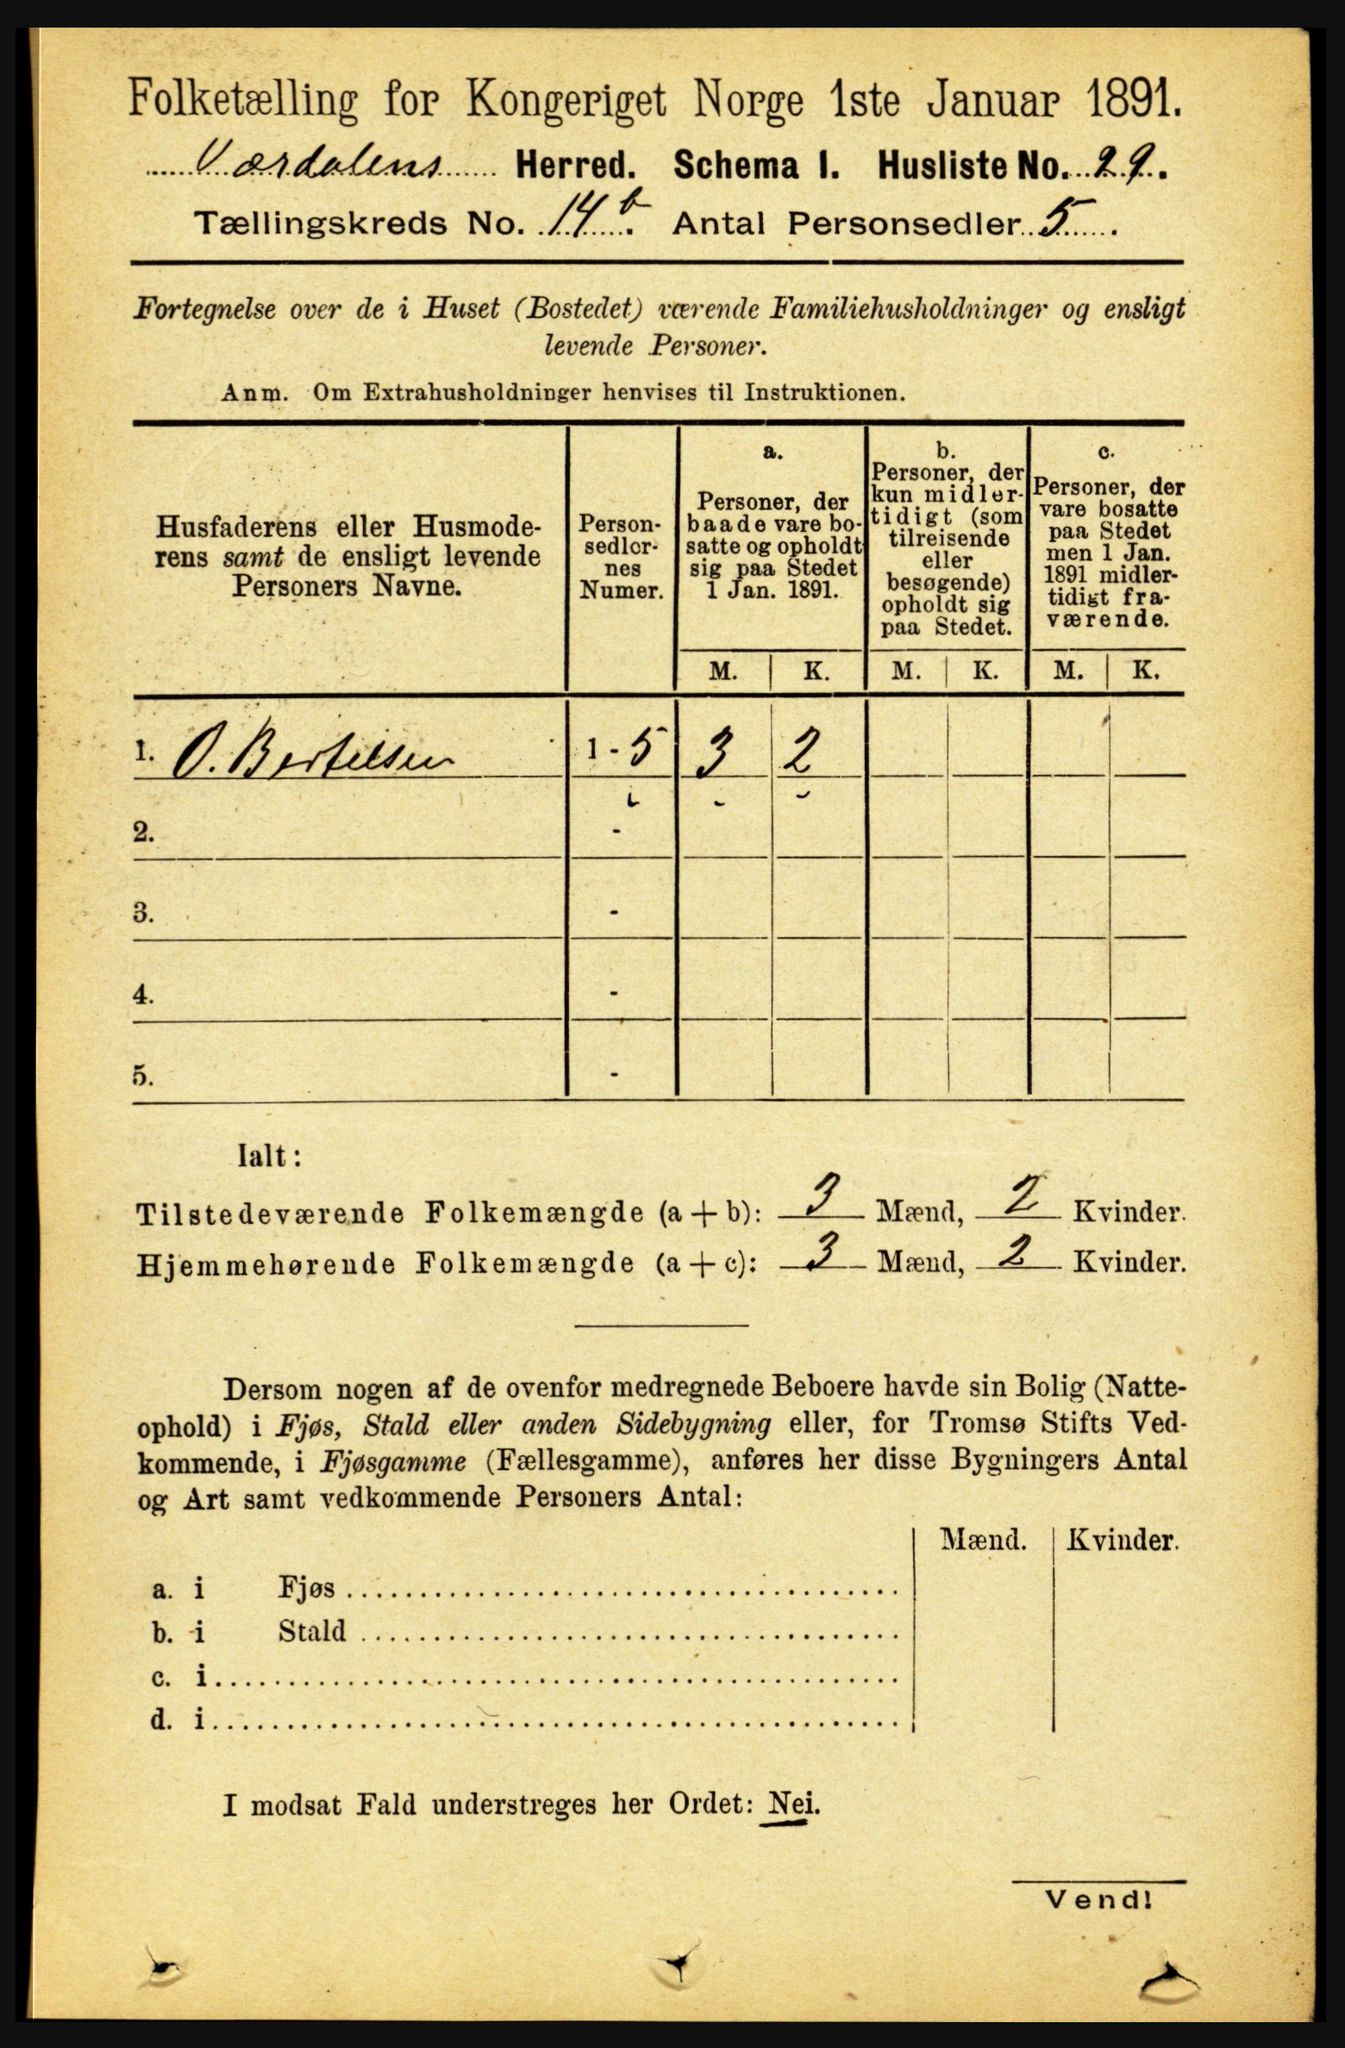 Folketælling for Kongeriget Norge 1ste Januar 1891.
Værdalens Herred. Schema I. Husliste No. 29.
Tællingskreds No. 14b. Antal Personsedler 5.
Fortegnelse over de i Huset (Bostedet) værende Familiehusholdninger og ensligt
levende Personer.
Anm. Om Extrahusholdninger henvises til Instruktionen.
Husfaderens eller Husmode-
rens samt de ensligt levende
Personers Navne.
Person-
sedler-
nes
Numer.
a.
Personer, der
baade vare bo-
satte og opholdt
sig paa Stedet
1 Jan. 1891.
b.
Personer, der
kun midler-
tidigt (som
tilreisende
eller
besøgende)
opholdt sig
paa Stedet.
c.
Personer, der
vare bosatte
paa Stedet
men 1 Jan.
1891 midler-
tidigt fra-
værende.
M. K. M. K. M. K.
1. O. Bertelsen 1 - 5 3 2
2. -
3. -
4. -
5. -
Ialt:
Tilstedeværende Folkemængde (a + b): 3 Mænd, 2 Kvinder.
Hjemmehørende Folkemængde (a + c): 3 Mænd, 2 Kvinder.
Dersom nogen af de ovenfor medregnede Beboere havde sin Bolig (Natte-
ophold) i Fjøs, Stald eller anden Sidebygning eller, for Tromsø Stifts Ved-
kommende, i Fjøsgamme (Fællesgamme), anføres her disse Bygningers Antal
og Art samt vedkommende Personers Antal:
Mænd. Kvinder.
a. i Fjøs
b. i Stald
c. i
d. i
I modsat Fald understreges her Ordet: Nei.
Vend!